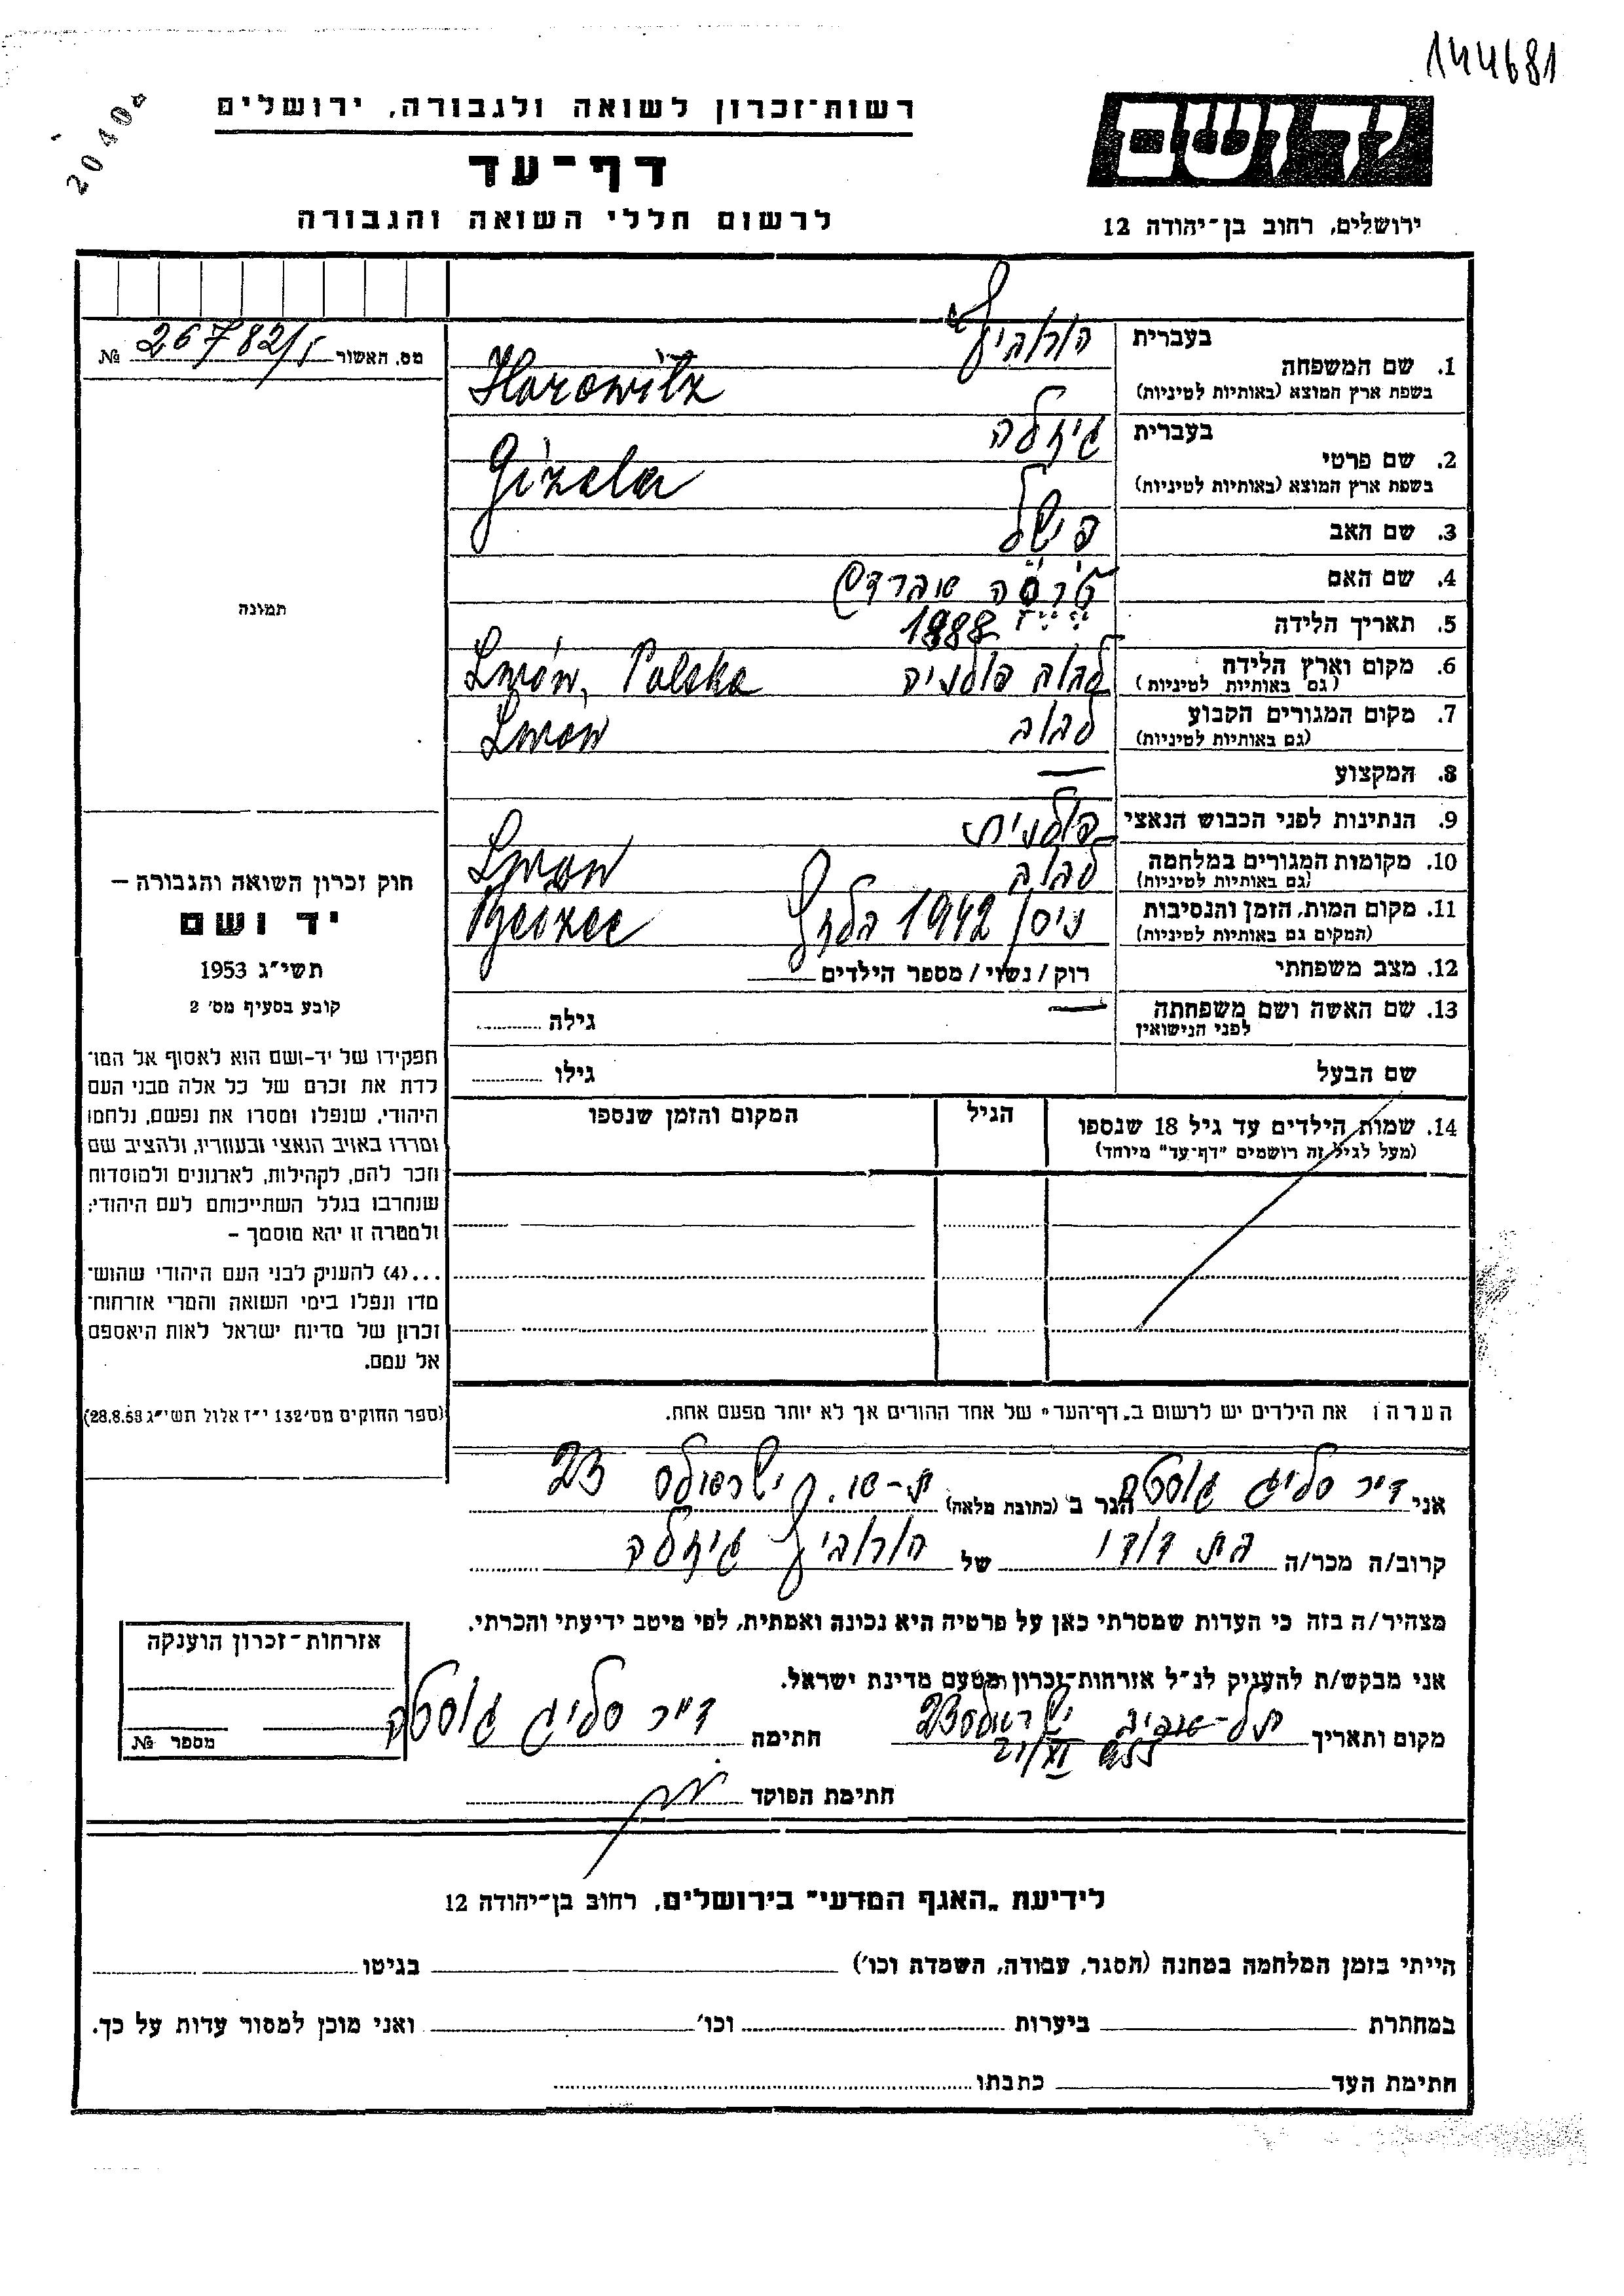 144681
20404
רשות-זכרון לשואה ולגבורה, ירושלים
יד ושם
דף-עד
לרשום חללי השואה והגבורה
ירושלים, רחוב בן-יהודה 12
מס. האשור 26782/5 №
בעברית הורוביץ
1. שם המשפחה
בשפת ארץ המוצא (באותיות לטיניות) Horowitz
בעברית גיזלה
2. שם פרטי
בשפת ארץ המוצא (באותיות לטיניות) Gizela
3. שם האב פישל
4. שם האם
5. תאריך הלידה 1888
6. מקום וארץ הלידה לבוב פולניה Lwów, Polska
(גם באותיות לטיניות)
7. מקום המגורים הקבוע לבוב Lwow
(גם באותיות לטיניות)
8. המקצוע —
9. הנתינות לפני הכבוש הנאצי פולנית
10. מקומות המגורים במלחמה לבוב Lwow
(גם באותיות לטיניות)
11. מקום המות, הזמן והנסיבות ניסן 1942 בלזץ Belzec
(המקום גם באותיות לטיניות)
12. מצב משפחתי רוק / נשוי / מספר הילדים
13. שם האשה ושם משפחתה — גילה
לפני הנישואין
שם הבעל גילו
14. שמות הילדים עד גיל 18 שנספו הגיל המקום והזמן שנספו
(מעל לגיל זה רושמים "דף-עד" מיוחד)
תמונה
חוק זכרון השואה והגבורה –
יד ושם
תשי"ג 1953
קובע בסעיף מס' 2
תפקידו של יד-ושם הוא לאסוף אל המו־
לדת את זכרם של כל אלה מבני העם
היהודי, שנפלו ומסרו את נפשם, נלחמו
ומרדו באויב הנאצי ובעוזריו, ולהציב שם
וזכר להם, לקהילות, לארגונים ולמוסדות
שנחרבו בגלל השתייכותם לעם היהודי;
ולמטרה זו יהא מוסמך –
...(4) להעניק לבני העם היהודי שהוש־
מדו ונפלו בימי השואה והמרי אזרחות־
זכרון של מדינת ישראל לאות היאספם
אל עמם.
(ספר החוקים מס' 132 י"ז אלול תשי"ג 28.8.53)
הערה: את הילדים יש לרשום ב„דף-העד" של אחד ההורים אך לא יותר מפעם אחת.
אני הגר ב (כתובת מלאה) ת-א. 23
קרוב/ה מכר/ה בת דודו של הורוביץ גיזלה
מצהיר/ה בזה כי העדות שמסרתי כאן על פרטיה היא נכונה ואמתית, לפי מיטב ידיעתי והכרתי.
אני מבקש/ת להעניק לנ"ל אזרחות-זכרון מטעם מדינת ישראל.
מקום ותאריך תל-אביב 23 חתימה
חתימת הפוקד
אזרחות-זכרון הוענקה
מספר №
לידיעת „האגף המדעי" בירושלים, רחוב בן-יהודה 12
הייתי בזמן המלחמה במחנה (הסגר, עבודה, השמדה וכו') בגיטו
במחתרת ביערות וכו' ואני מוכן למסור עדות על כך.
חתימת העד כתבתו